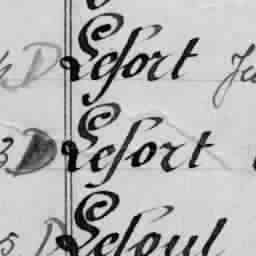 D Lefort Ju
3 D Lefort
5 D Lesoul